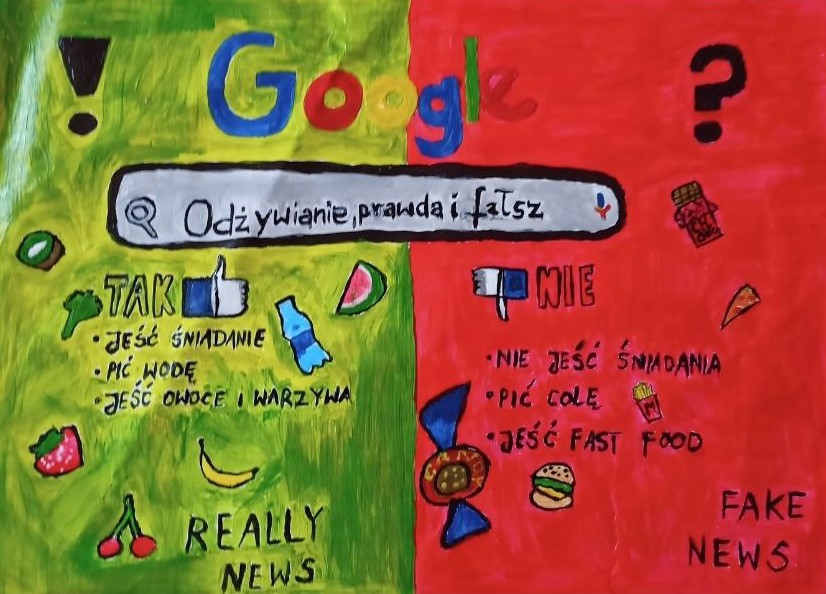 !
Google
?
Odżywianie, prawda i fałsz
TAK
• JEŚĆ ŚNIADANIE
• PIĆ WODĘ
• JEŚĆ OWOCE I WARZYWA
REALLY
NEWS
NIE
• NIE JEŚĆ ŚNIADANIA
• PIĆ COLĘ
• JEŚĆ FAST FOOD
M
FAKE
NEWS